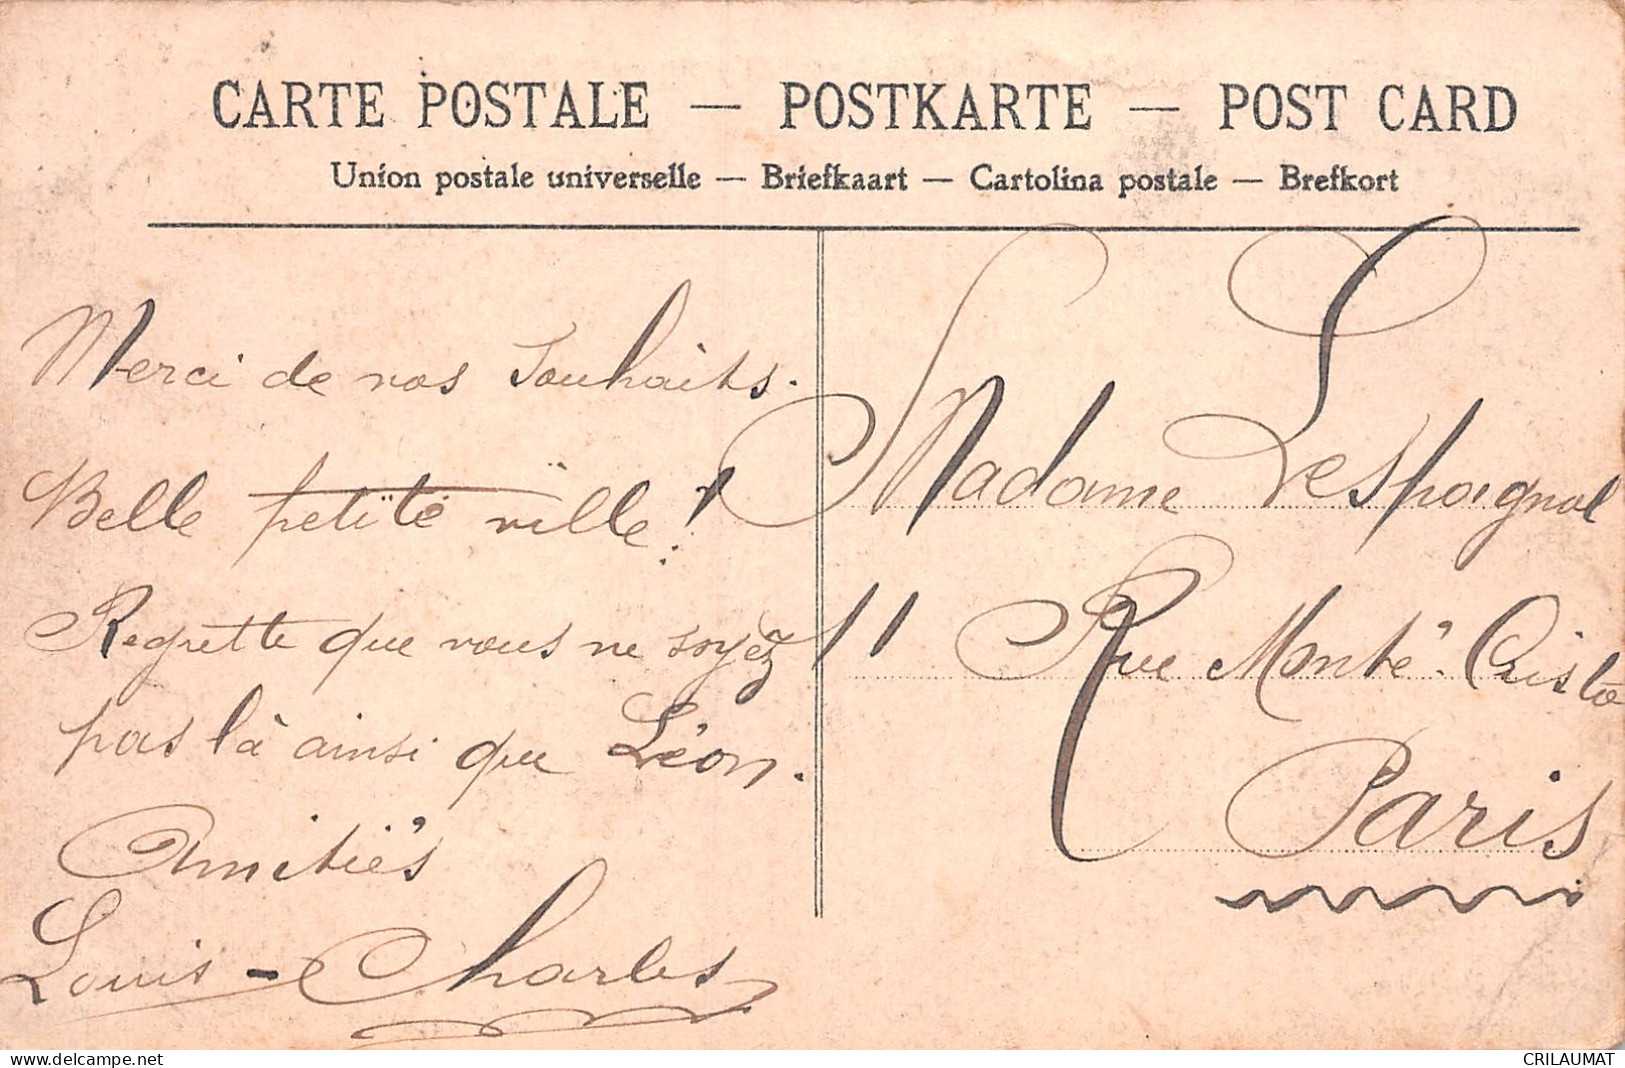 CARTE POSTALE — POSTKARTE — POST CARD
Union postale universelle — Briefkaart — Cartolina postale — Brefkort
Merci de nos Souhaits.
Belle petite ville !
Regrette que vous ne soyez
pas là ainsi que Léon.
Amitiés
Louis - Charles
Madame Lespagnol
11 Rue Monté-Cristo
Paris
delcampe.net
CRILAUMAT